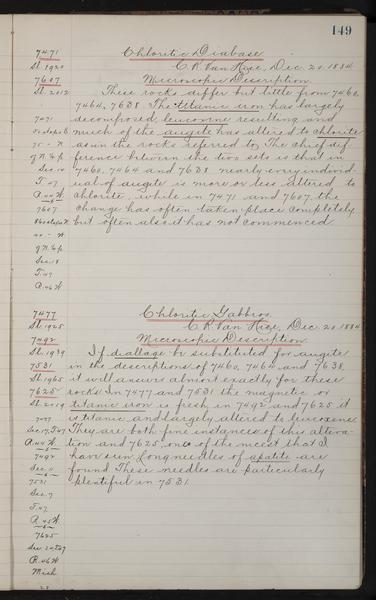 149
7471
Chloritic Diabase
Sl. 1920
C. R. Van Hise, Dec. 20. 1884
7607
Microscopic Description
Sl. 2012
These rocks differ but little from 7460,
7464, 7638. The titanic iron has largely
7471
decomposed, leucoxine resulting and
much of the augite has altered to chlorite
as in the rocks referred to. The chief dif
ference between the two sets is that in
Sec. 10
7460, 7464 and 7638 nearly every individ-
T. 47
ual of augite is more or less altered to
R. 44 W
chlorite, while in 7471 and 7607 the
7607
change has often taken place completely
but often also it has not commenced.
Sec. 18
T. 47
R. 46 W
7477
Chloritic Gabbros.
Sl. 1925
C. R. Van Hise, Dec. 20. 1884
7492
Microscopic Description
Sl. 1939
If diallage be substituted for augite
7531
in the descriptions of 7460, 7464 and 7638,
Sl. 1965
it will answer almost exactly for these
7625
rocks. In 7477 and 7531 the magnetic or
Sl. 2019
titanic iron is fresh in 7492 and 7625 it
7477
is titanic and largely altered to leucoxene.
They are both fine instances of this altera-
R. 44 W
tion and 7625 one of the nicest that I
7492
have seen. Long needles of apatite are
Sec. 11
found. These needles are particularly
7531
plentiful in 7531.
Sec. 7
T. 47
R. 45 W
7625
R. 46 W
Mich